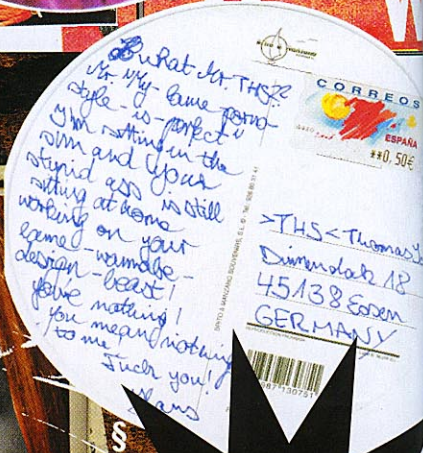 What Mr. THS??
Mr. "My-lame-porno-
style-is-perfect"
I'm sitting in the
sun and your
stupid ass is still
sitting at home
working on your
lame-wannabe-
design-beast!
you're nothing!
you mean nothing
to me
Fuck you!
Klaus
CORREOS
ESPAÑA
**0,50€
>THS< Thomas
45138 Essen
GERMANY
§